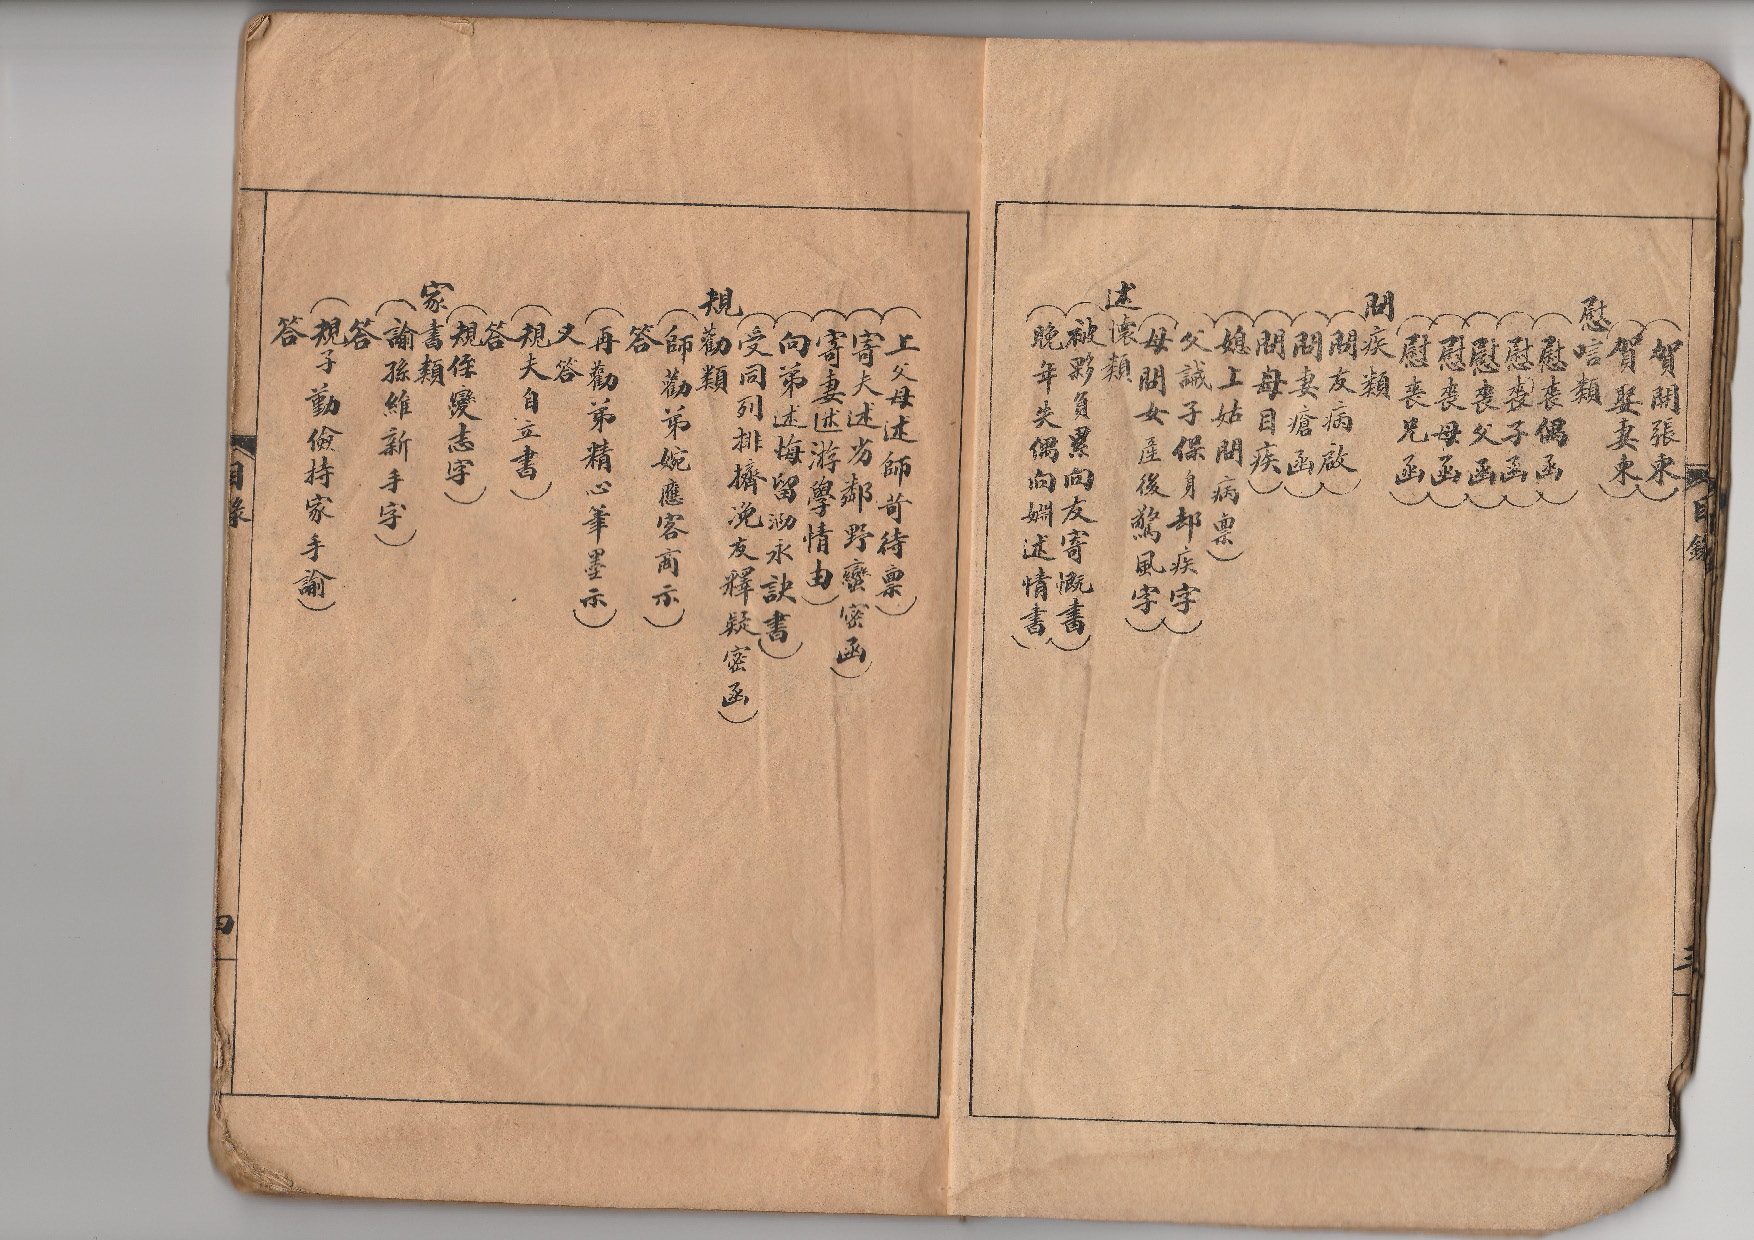 賀開張柬
賀娶妻柬
慰唁類
慰喪偶函
慰喪子函
慰喪父函
慰喪母函
慰喪兄函
問疾類
問友病啟
問妻瘡函
問母目疾
媳上姑問病禀
父誡子保身却疾字
母問女產後驚風字
述懷類
被夥負累向友寄慨書
晚年失偶向姻述情書
目錄
三
上父母述師苛待禀
寄夫述劣鄰野蠻密函
寄妻述游學情由
向弟述悔留泐永訣書
受同列排擠浼友釋疑密函
規勸類
師勸弟婉應客商示
答
再勸弟精心筆墨示
又答
規夫自立書
答
規侄變志字
家書類
諭孫維新手字
答
規子勤儉持家手諭
答
目錄
四